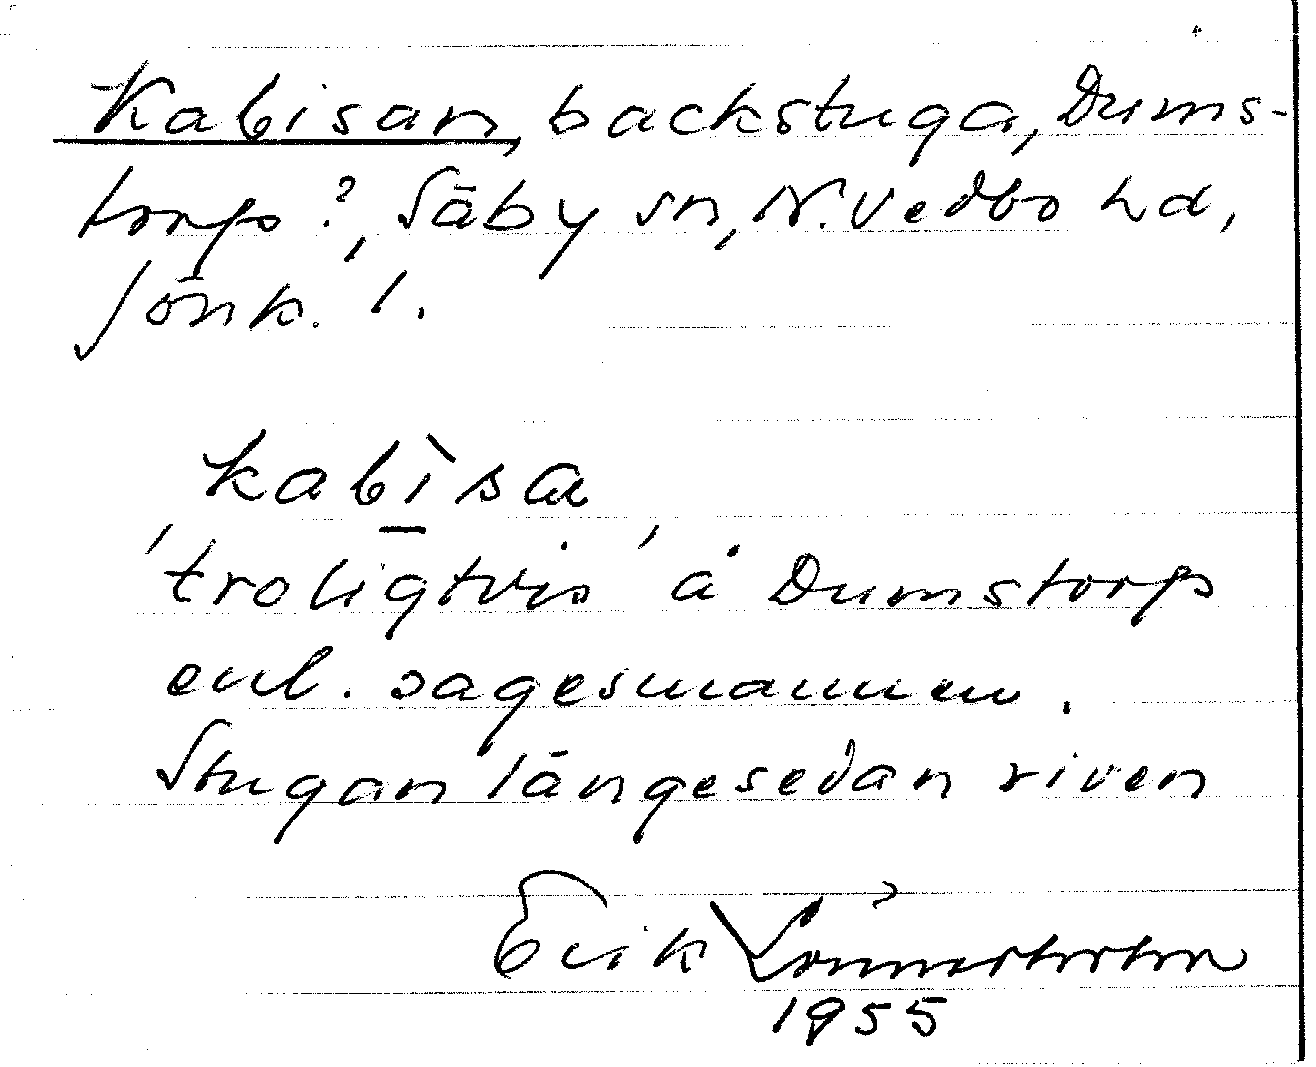 Kabisan, backstuga, Dums-
torps?, Säby sn, N. Vedbo hd,
Jönk. l.
kabìsa
'troligtvis' å Dumstorps
enl. sagesmannen.
Stugan längesedan riven
Erik Lönnerholm
1955